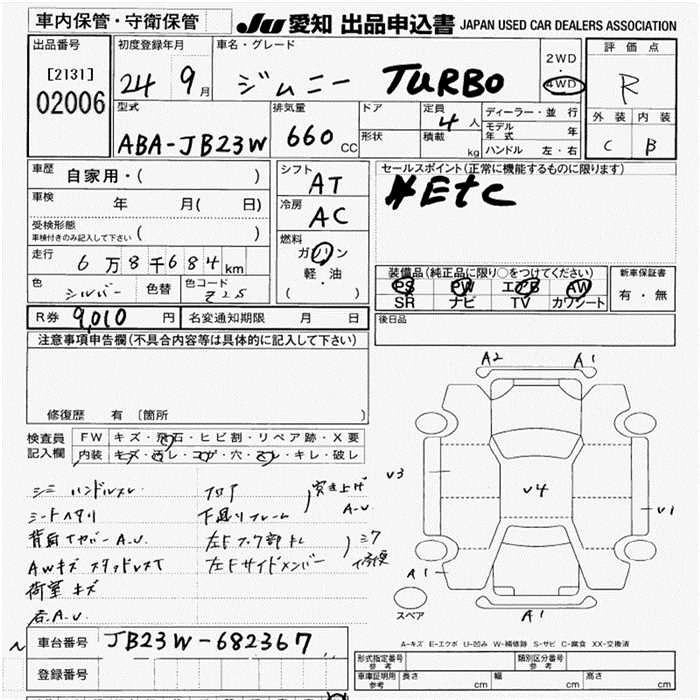 車内保管・守衛保管
JU 愛知 出品申込書 JAPAN USED CAR DEALERS ASSOCIATION
出品番号
[2131]
02006
初度登録年月
24 9月
車名・グレード
ジムニー TURBO
2WD
・
4WD
評価点
R
外装 内装
C B
型式
ABA-JB23W
排気量
660 CC
ドア
形状
定員
4人
積載
kg
ディーラー・並行
モデル年式 年
ハンドル 左・右
車歴
自家用・( )
車検
年 月( 日)
受検形態
車検付きのみ記入して下さい ( )
走行
6万8千684km
色
シルバー
色替
色コード
Z2S
シフト
AT
冷房
AC
燃料
ガソリン
・
軽・油
( )
セールスポイント(正常に機能するものに限ります)
Etc
装備品(純正品に限り○をつけてください)
PS PW エアB AW
SR ナビ TV カワシート
新車保証書
有・無
R券 9,010 円
名変通知期限 月 日
後日品
注意事項申告欄(不具合内容等は具体的に記入して下さい)
修復歴 有 [箇所 ]
検査員
記入欄
FW キズ・飛石・ヒビ割・リペア跡・X要
内装 キズ・汚レ・コゲ・穴・スレ・キレ・破レ
シミ ハンドルスレ
シートヘタリ
背面タイヤカバーA.U
AWキズ
荷室キズ
右A.U
フロア
下廻りフレーム
突き上げ
A.U
左Fフック部
左Fサイドメンバー
A2 A1
V3
V4
V1
A1
A1
スペア
A-キズ E-エクボ U-凹み W-補修跡 S-サビ C-腐食 XX-交換済
車台番号
JB23W-682367
登録番号
形式指定番号
参考
類別区分番号
参考
車庫証明用
参考
長さ cm
幅 cm
高さ cm